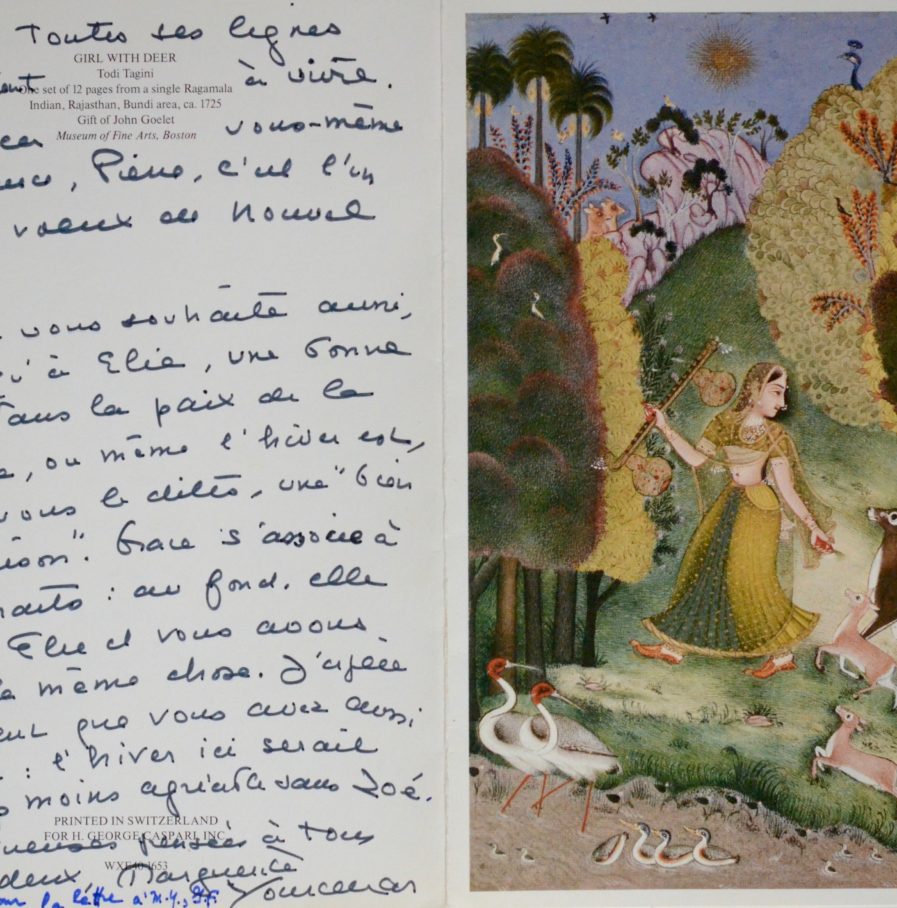 Toutes ses lignes
GIRL WITH DEER
Todi Tagini
One set of 12 pages from a single Ragamala
à vivre.
Indian, Rajasthan, Bundi area, ca. 1725
Gift of John Goelet
Museum of Fine Arts, Boston
vous-même
, Pierre, c'est l'un
voeux de Nouvel
vous souhaite aussi,
qu'à Elie, une bonne
dans la paix de la
, ou même l'hiver est,
vous le dites, une "bien
". Grace s'associe à
: au fond, elle
Elie et vous avons
la même chose. J'espère
que vous avez aussi
: l'hiver ici serait
moins agréable sans Zoé.
PRINTED IN SWITZERLAND
FOR H. GEORGE CASPARI, INC.
pensées à tous
WXE40-1653
deux Marguerite
Yourcenar
la lettre à M.Y.,